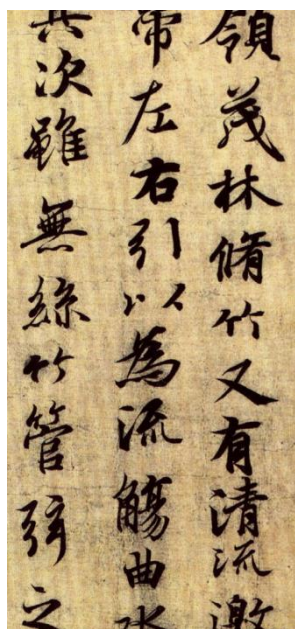 領茂林脩竹又有清流激
帶左右引以為流觴曲水
其次雖無絲竹管弦之